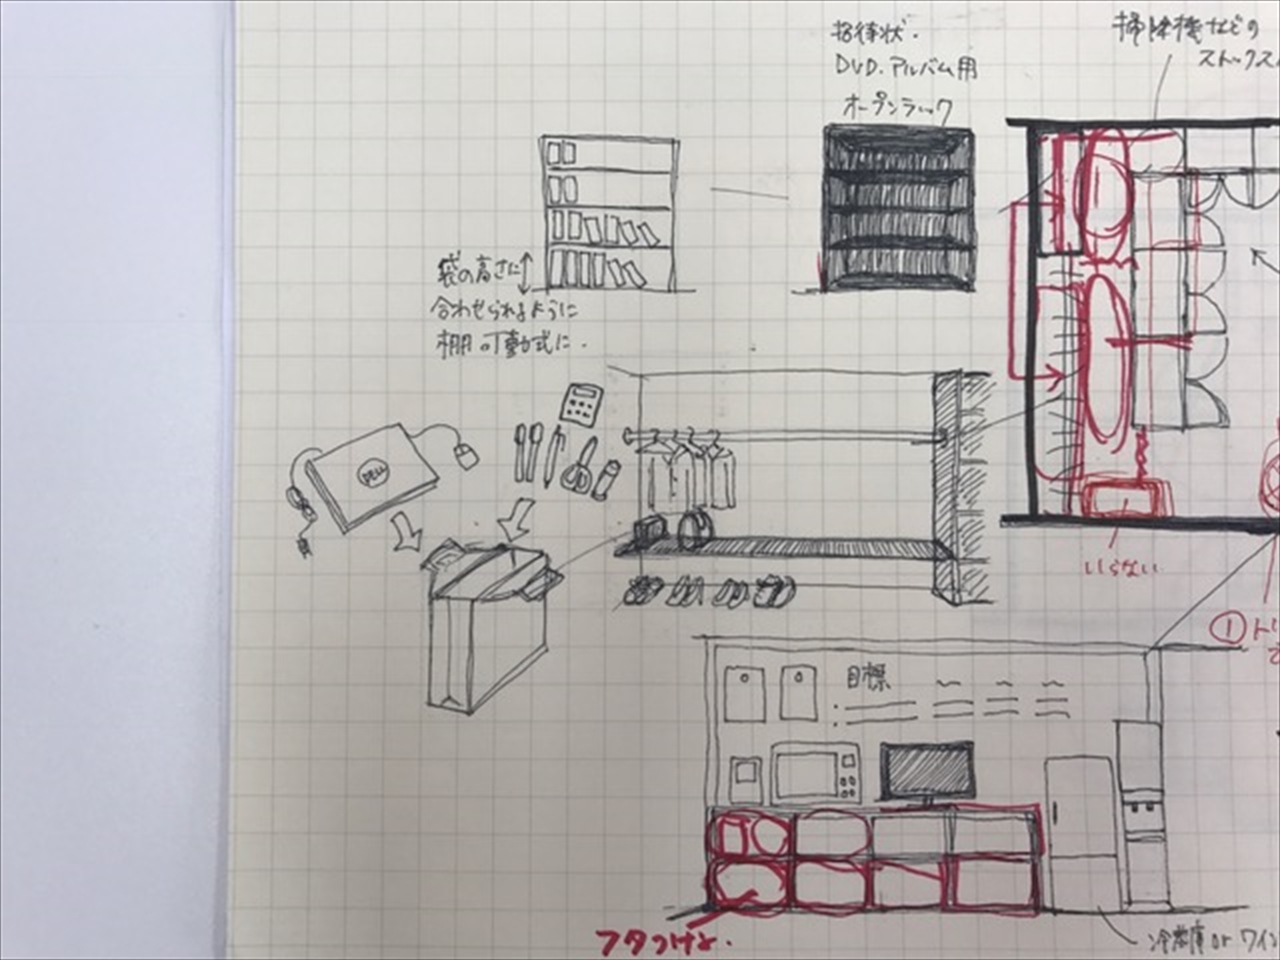 招待状.
DVD.アルバム用
オープンラック
掃除機などの
ストックス
袋の高さに
合わせられるように
棚可動式に.
DELL
いらない
①
目標
フタつけよ.
冷蔵庫orワイン